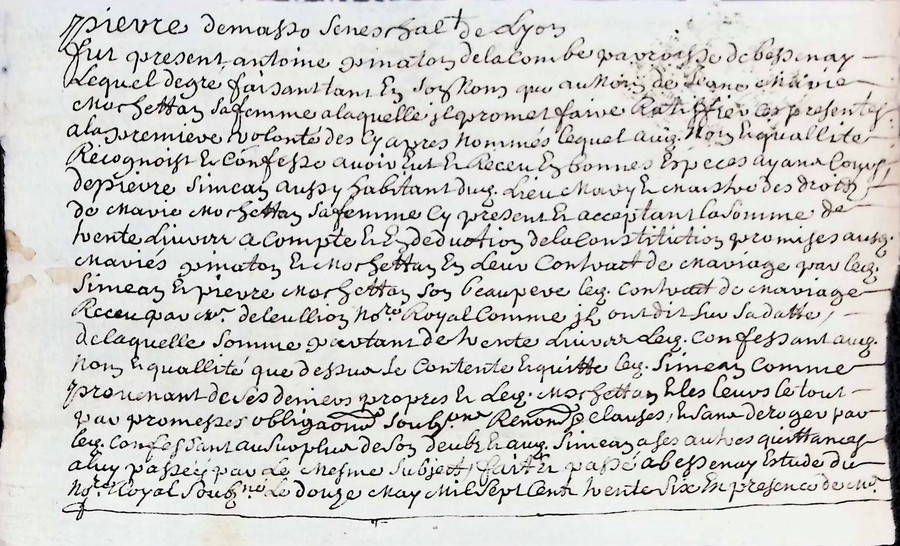 pierre demasso seneschal et de Lyon
fut present antoine pinaton de la Combe parroisse de bessenay
Lequel de gré faisant tant En son Nom que au Nom de Jeane Marie
Mochettan sa femme a laquelle jl promet faire Ratiffier Ces presentes
a la premiere volonté des Cy apres Nommés lequel aug. Nom Equallité
Recognoist Et Confesse avoir Eut Et Receu En bonnes Especes ayant Cours
de pierre Simean aussy habitant dug. Lieu Mary Et Maistre des droits
de Marie Mochettan sa femme Cy present Et acceptant la Somme de
trente Livres a Compte Et En deduction de la Constitution promise ausg.
Mariés pinaton Et Mochettan En Leur Contract de Mariage par leg.
Simean Et pierre Mochettan son beau pere leg. Contract de Mariage
Receu par Mr. deleullion Nore Royal Comme jls ont dit sur sa datte,
de laquelle Somme partant de trente Livres Leg. Confessant aug.
Nom Equallité que dessus se Contente Et quitte leg. Simean Comme
provenant de ses deniers propres Et Leg. Mochettan Et les Leurs le tout
par promesses obligaons soubmons Renonons Et clauses, Et sans deroger par
leg. Confessant au surplus de son deub Et aug. Simean a ses autres quittances
a luy passées par Le Mesme Subject, fait Et passé a bessenay Estude du
Nore Royal Soubzné Le douze May Mil Sept Cent trente Six En presence de Mr.